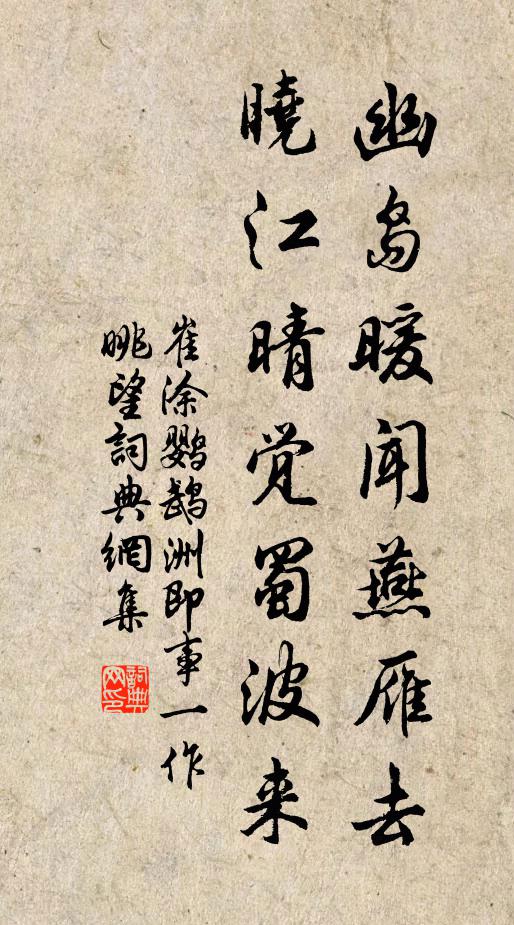 幽岛暖闻燕雁去
晓江晴觉蜀波来
崔涂鹦鹉洲即事一作
眺望詞典網集
詞典
网印